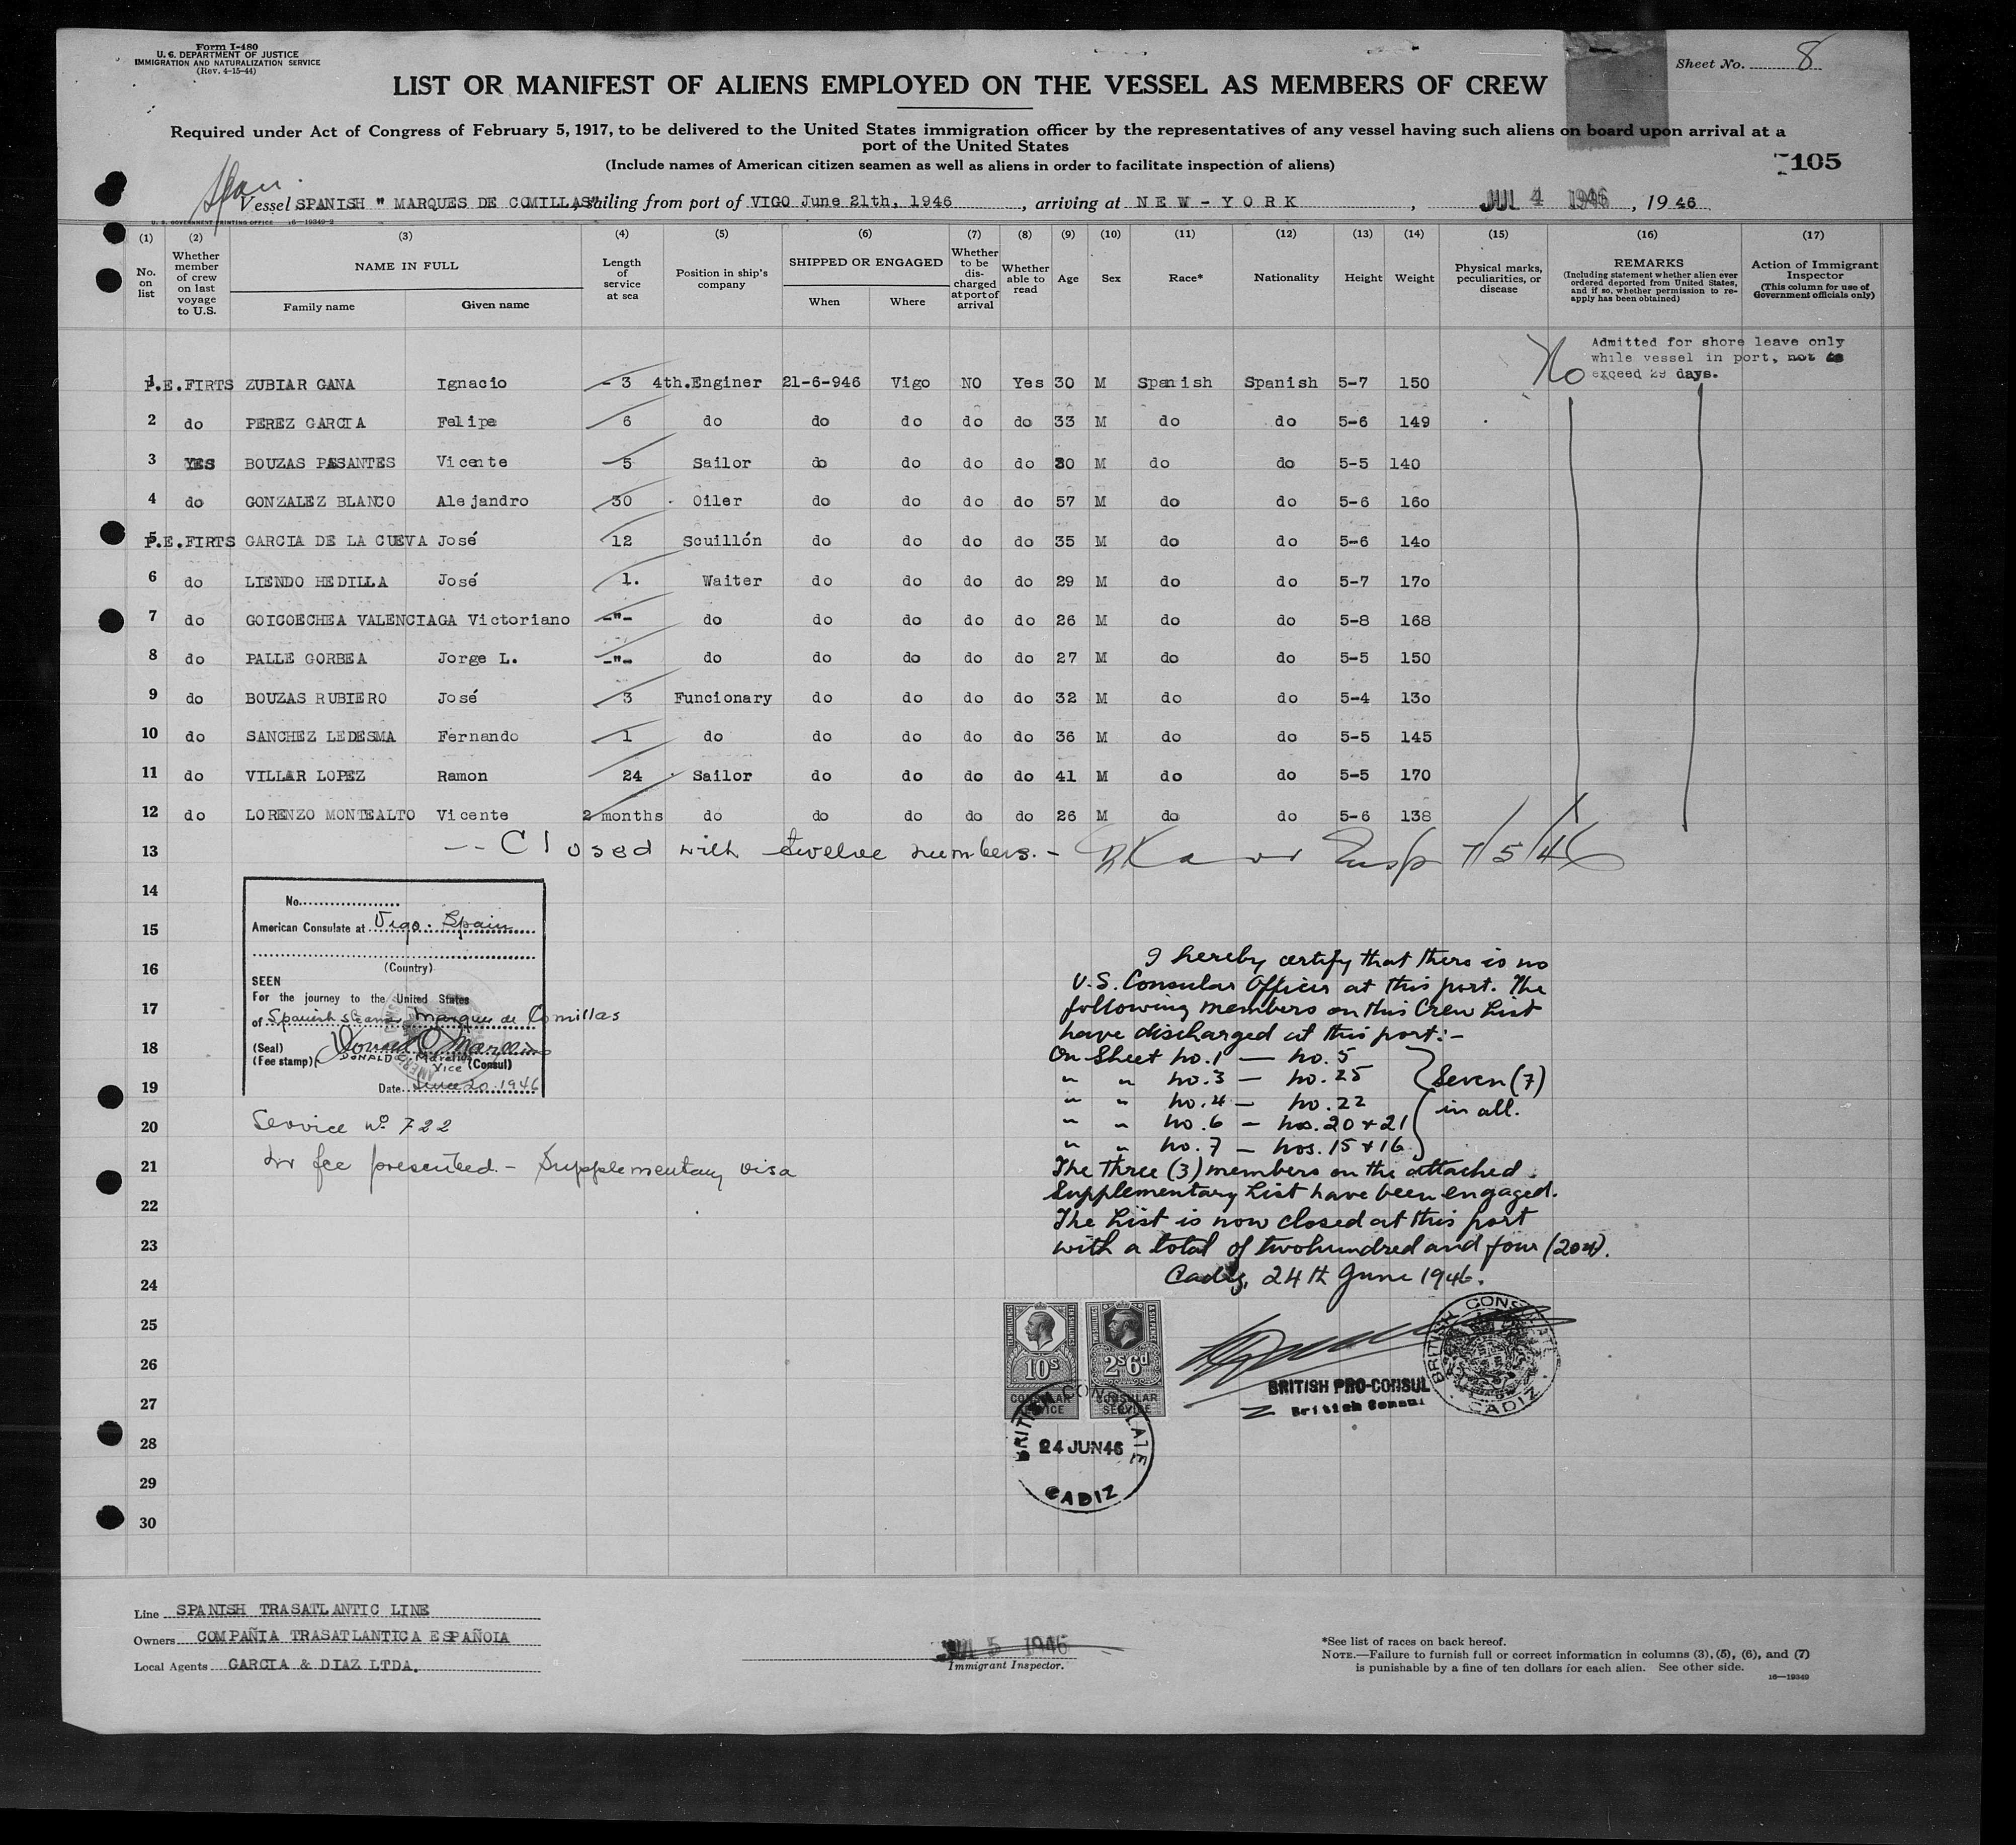 Form I-480
U. S. DEPARTMENT OF JUSTICE
IMMIGRATION AND NATURALIZATION SERVICE
(Rev. 4-15-44)
Sheet No. 8
LIST OR MANIFEST OF ALIENS EMPLOYED ON THE VESSEL AS MEMBERS OF CREW
Required under Act of Congress of February 5, 1917, to be delivered to the United States immigration officer by the representatives of any vessel having such aliens on board upon arrival at a
port of the United States
(Include names of American citizen seamen as well as aliens in order to facilitate inspection of aliens)
105
Span.
Vessel SPANISH " MARQUES DE COMILLAS", sailing from port of VIGO June 21th, 1946, arriving at NEW-YORK, JUL 4 1946, 1946
U. S. GOVERNMENT PRINTING OFFICE 16-19349-2
(1) (2) (3) (4) (5) (6) (7) (8) (9) (10) (11) (12) (13) (14) (15) (16) (17)
No. on list
Whether member of crew on last voyage to U.S.
NAME IN FULL
Family name
Given name
Length of service at sea
Position in ship's company
SHIPPED OR ENGAGED
When
Where
Whether to be discharged at port of arrival
Whether able to read
Age
Sex
Race*
Nationality
Height
Weight
Physical marks, peculiarities, or disease
REMARKS
(Including statement whether alien ever ordered deported from United States, and if so, whether permission to reapply has been obtained)
Action of Immigrant Inspector
(This column for use of Government officials only)
No
Admitted for shore leave only
while vessel in port, not to
exceed 29 days.
1 P.E.FIRTS ZUBIAR GANA Ignacio - 3 4th.Enginer 21-6-946 Vigo NO Yes 30 M Spanish Spanish 5-7 150
2 do PEREZ GARCIA Felipe 6 do do do do do 33 M do do 5-6 149
3 YES BOUZAS PASANTES Vicente 5 Sailor do do do do 30 M do do 5-5 140
4 do GONZALEZ BLANCO Alejandro 30 Oiler do do do do 57 M do do 5-6 160
5 P.E.FIRTS GARCIA DE LA CUEVA José 12 Scuillón do do do do 35 M do do 5-6 140
6 do LIENDO HEDILLA José 1. Waiter do do do do 29 M do do 5-7 170
7 do GOICOECHEA VALENCIAGA Victoriano -"- do do do do do 26 M do do 5-8 168
8 do PALLE GORBEA Jorge L. -"- do do do do do 27 M do do 5-5 150
9 do BOUZAS RUBIERO José 3 Funcionary do do do do 32 M do do 5-4 130
10 do SANCHEZ LEDESMA Fernando 1 do do do do do 36 M do do 5-5 145
11 do VILLAR LOPEZ Ramon 24 Sailor do do do do 41 M do do 5-5 170
12 do LORENZO MONTEALTO Vicente 2 months do do do do do 26 M do do 5-6 138
13 -- Closed with twelve numbers. - Insp 7/5/46
14
15
16
17
18
19
20
21
22
23
24
25
26
27
28
29
30
No.
American Consulate at Vigo. Spain
(Country)
SEEN
For the journey to the United States
of Spanish steamer Marques de Comillas
(Seal)
(Fee stamp)
DONALD
Vice (Consul)
Date June 20 1946
Service Nº 722
No fee presented. - Supplementary visa
I hereby certify that there is no
U.S. Consular Officer at this port. The
following members on this Crew List
have discharged at this port:-
On Sheet no. 1 — no. 5
" " no. 3 — no. 25
" " no. 4 — no. 22
" " no. 6 — nos. 20 + 21
" " no. 7 — nos. 15 + 16
Seven (7)
in all.
The three (3) members on the attached
Supplementary List have been engaged.
The List is now closed at this port
with a total of two hundred and four (204).
Cadiz, 24th June 1946.
TEN SHILLINGS
10s
CONSULAR SERVICE
2s6d
CONSULAR SERVICE
BRITISH CONSULATE
24 JUN 46
CADIZ
BRITISH PRO-CONSUL
British Consul
BRITISH CONSULATE
CADIZ
Line SPANISH TRASATLANTIC LINE
Owners COMPAÑIA TRASATLANTICA ESPAÑOLA
Local Agents GARCIA & DIAZ LTDA.
JUL 5 1946
Immigrant Inspector.
*See list of races on back hereof.
NOTE.—Failure to furnish full or correct information in columns (3), (5), (6), and (7)
is punishable by a fine of ten dollars for each alien. See other side.
16—19349